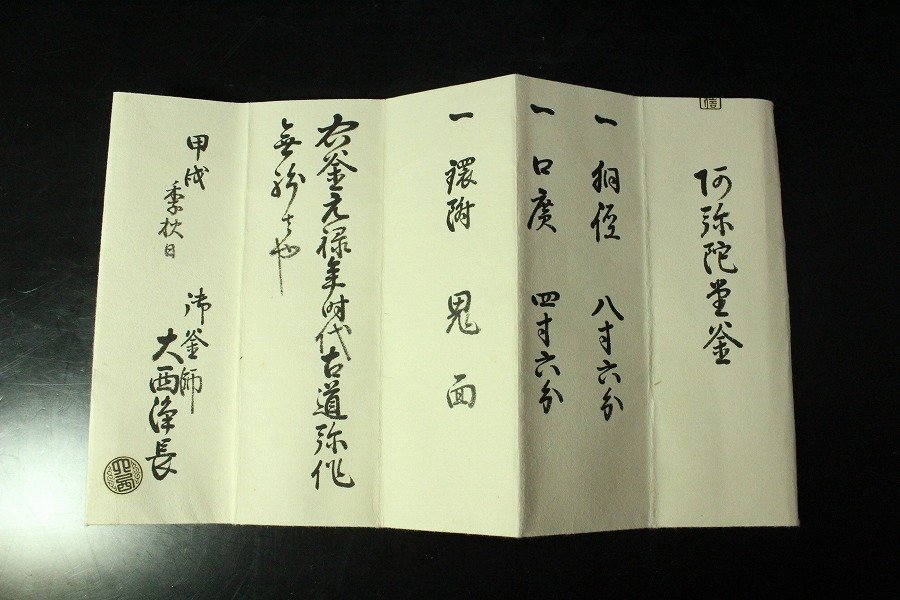 阿弥陀堂釜
一 胴径 八寸六分
一 口廣 四寸六分
一 鐶附 鬼面
右釜元禄年時代古道弥作
無紛者也
甲戌
季秋日
御釜師
大西浄長
大西